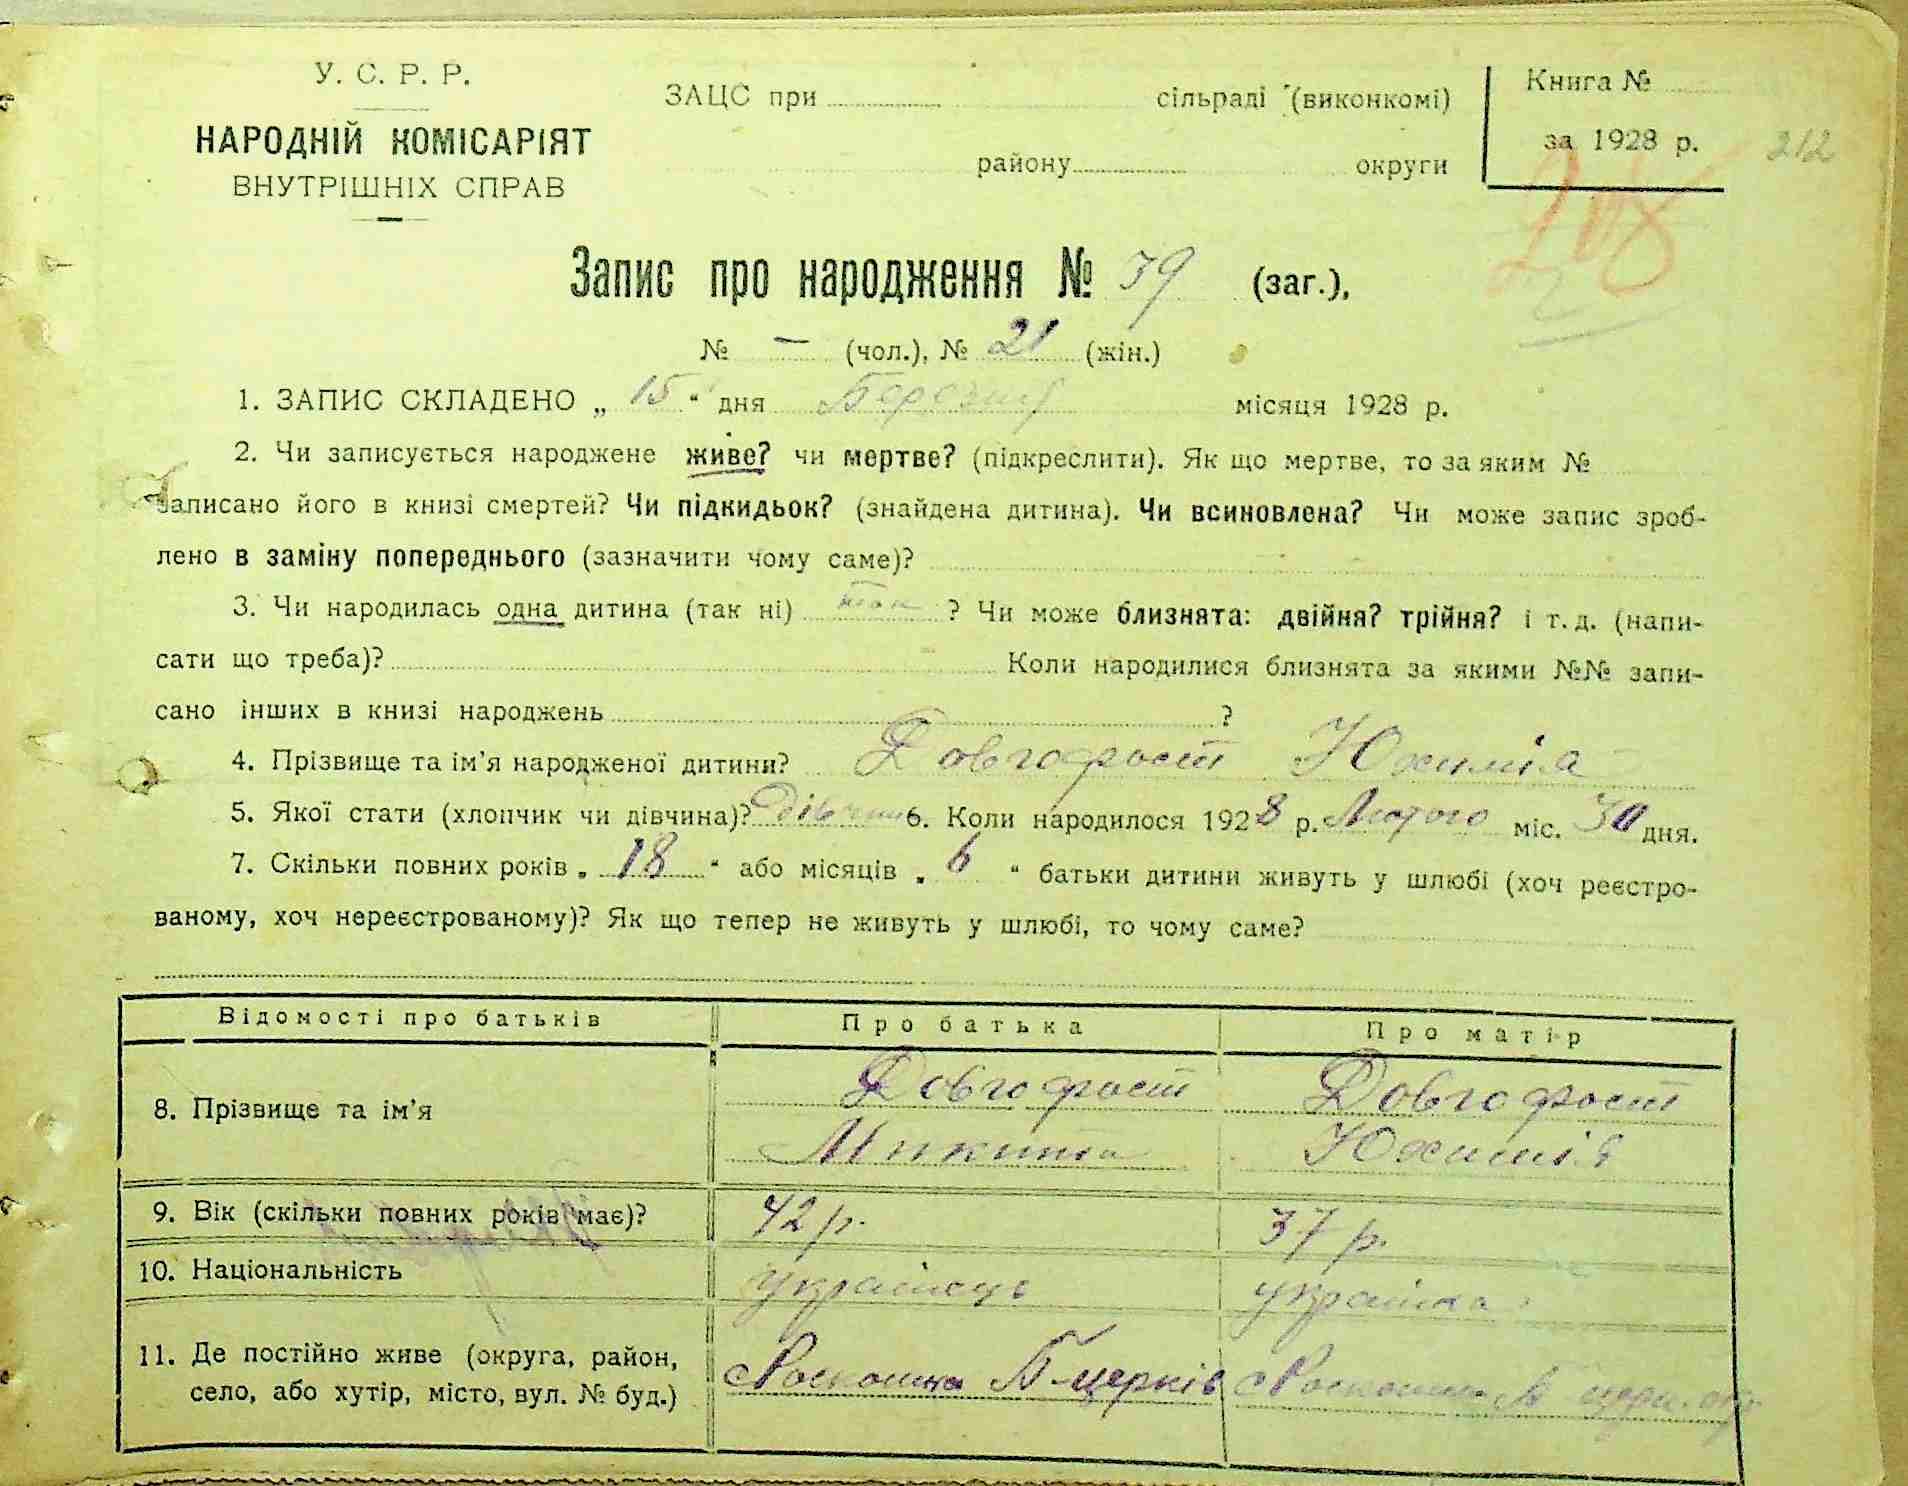 У. С. Р. Р.
НАРОДНІЙ КОМІСАРІЯТ
ВНУТРІШНІХ СПРАВ
ЗАЦС при сільраді (виконкомі)
району округи
Книга №
за 1928 р.
212
208
Запис про народження № 39 (заг.),
№ — (чол.), № 21 (жін.)
1. ЗАПИС СКЛАДЕНО „ 15 “ дня Березня місяця 1928 р.
2. Чи записується народжене живе? чи мертве? (підкреслити). Як що мертве, то за яким №
записано його в книзі смертей? Чи підкидьок? (знайдена дитина). Чи всиновлена? Чи може запис зроб-
лено в заміну попереднього (зазначити чому саме)?
3. Чи народилась одна дитина (так ні) так ? Чи може близнята: двійня? трійня? і т. д. (напи-
сати що треба)? Коли народилися близнята за якими №№ запи-
сано інших в книзі народжень ?
4. Прізвище та ім'я народженої дитини? Довгофост Юхимія
5. Якої стати (хлопчик чи дівчина)? дівчина 6. Коли народилося 1928 р. Лютого міс. 30 дня.
7. Скільки повних років „ 18 “ або місяців „ 6 “ батьки дитини живуть у шлюбі (хоч реєстро-
ваному, хоч нереєстрованому)? Як що тепер не живуть у шлюбі, то чому саме?
Відомості про батьків Про батька Про матір
8. Прізвище та ім'я Довгофост Довгофост
Микита Юхимія
9. Вік (скільки повних років має)? 42 р. 37 р.
10. Національність українець українка
11. Де постійно живе (округа, район,
село, або хутір, місто, вул. № буд.)
с Роскошна Б-церків с Роскошна Б церк. окр.